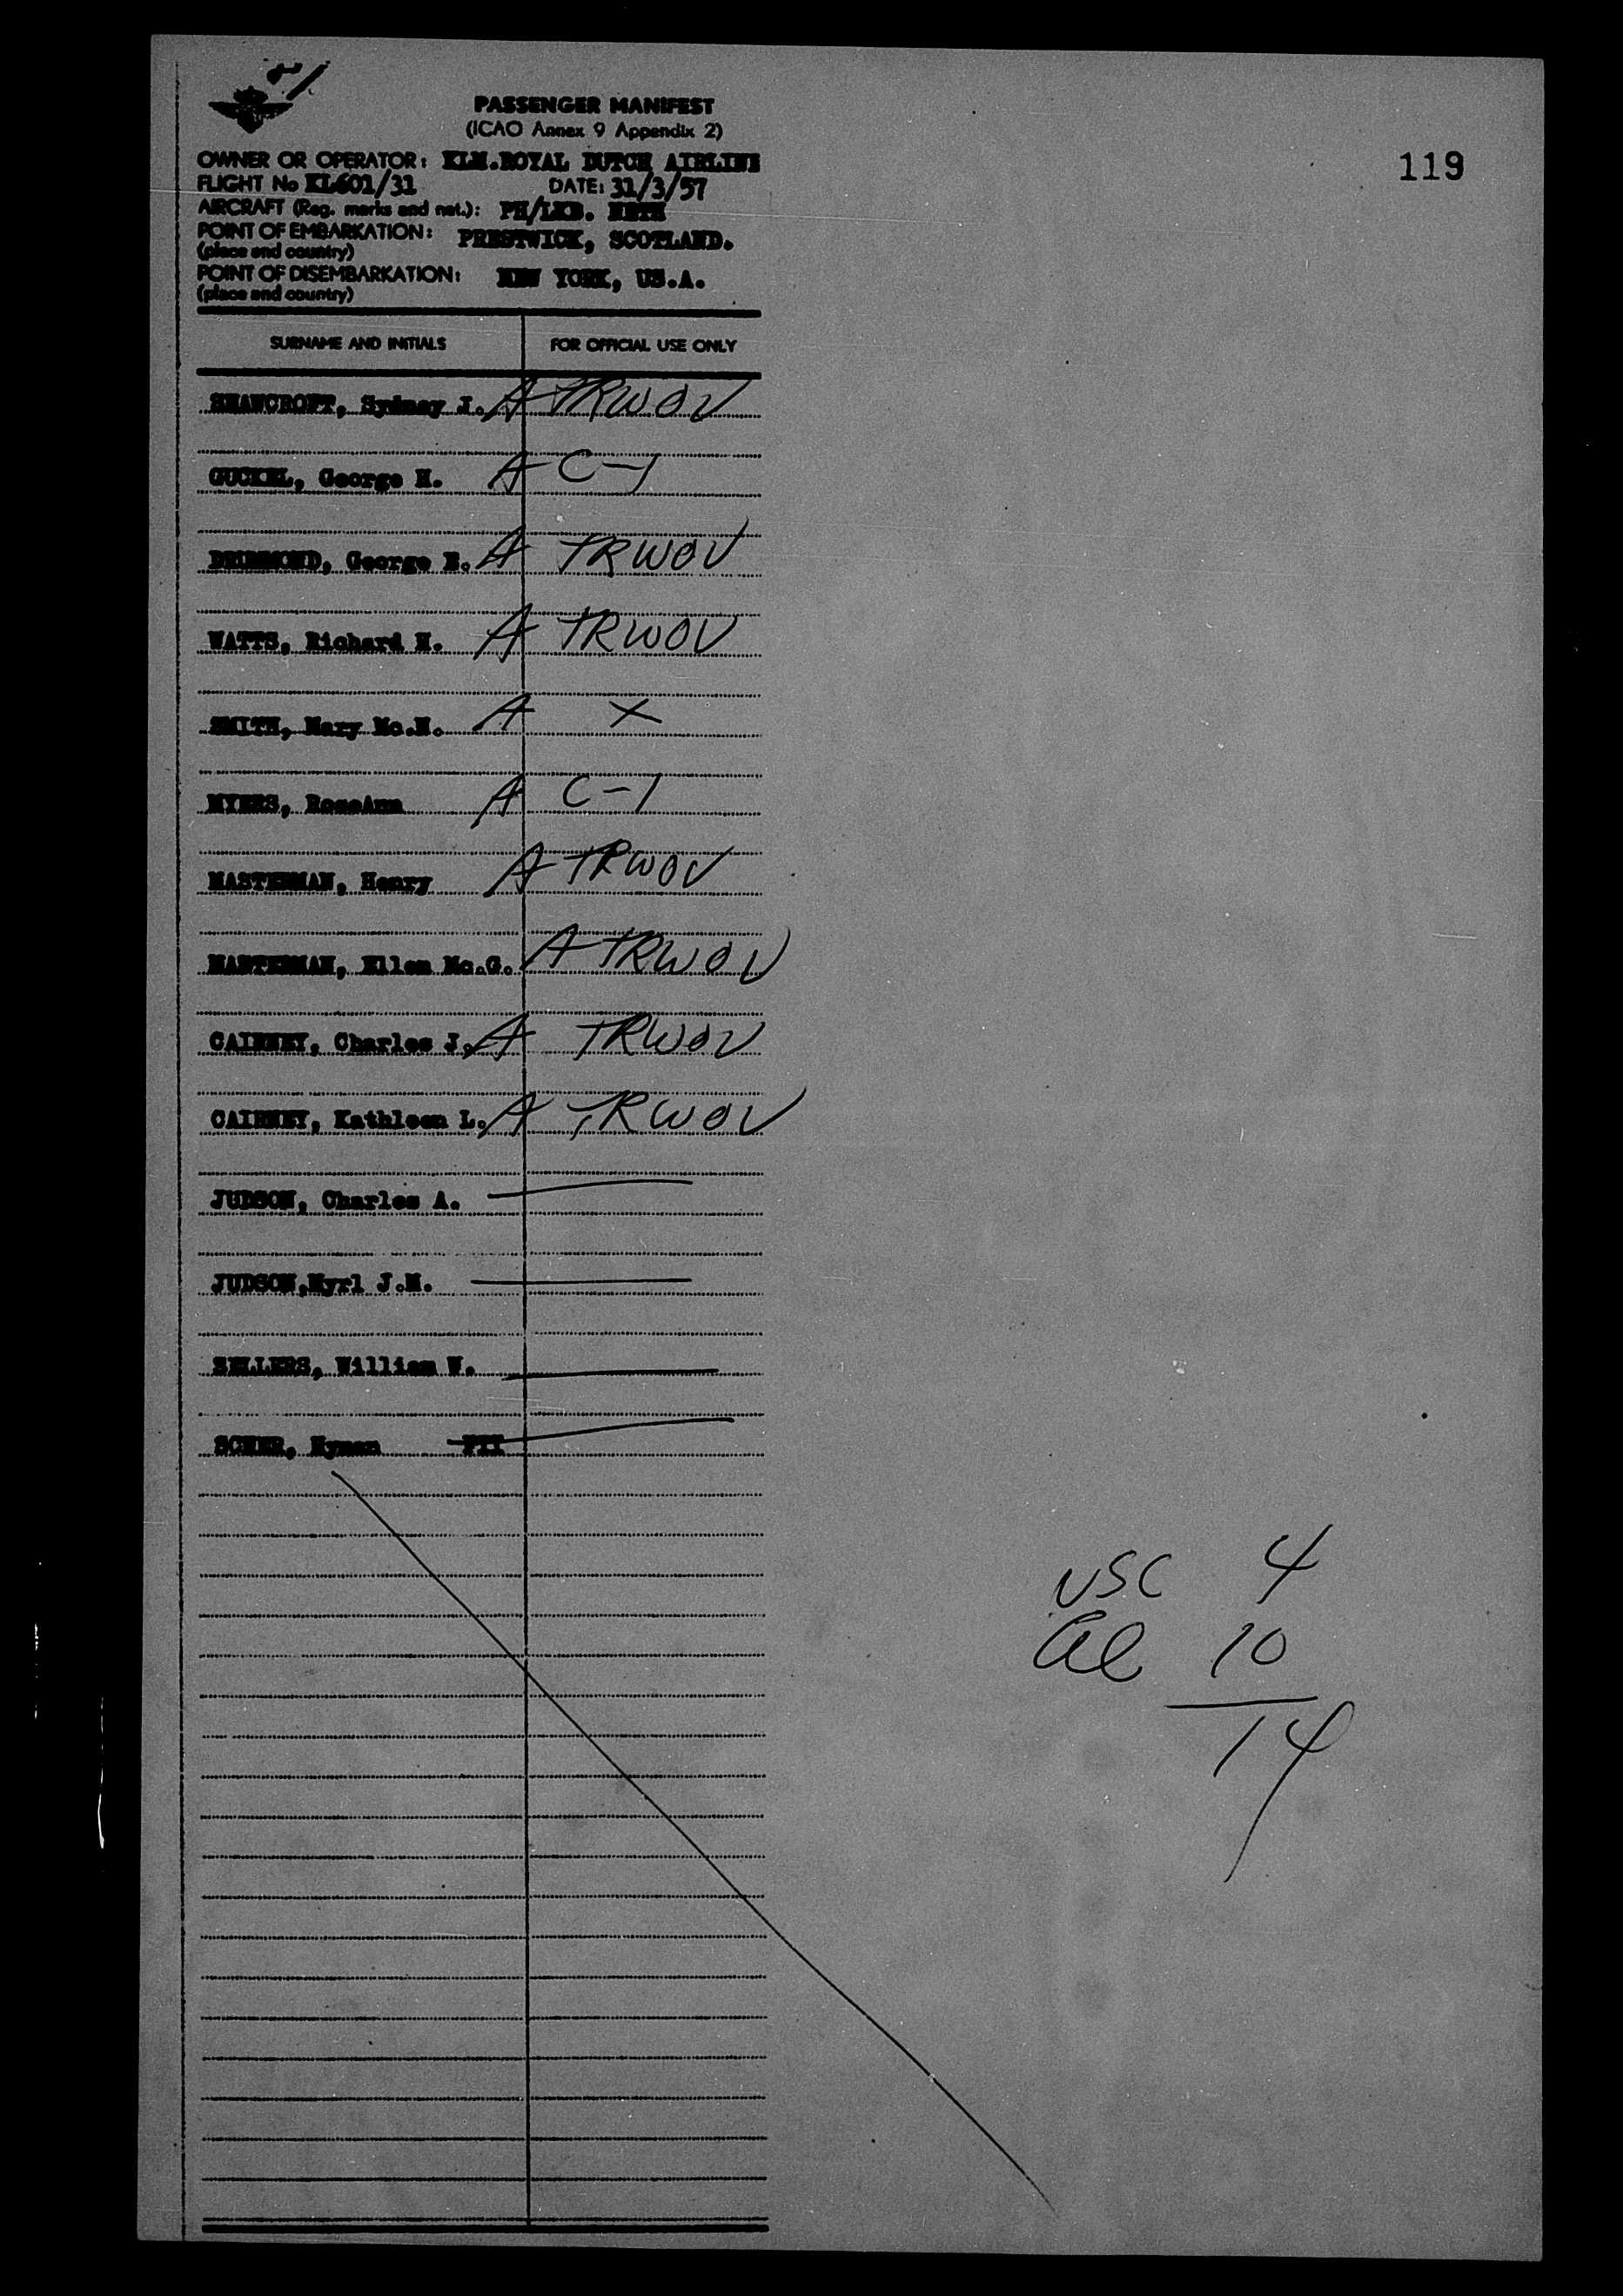 119
PASSENGER MANIFEST
(ICAO Annex 9 Appendix 2)
OWNER OR OPERATOR: KLM.ROYAL DUTCH AIRLINE
FLIGHT No KL601/31 DATE: 31/3/57
AIRCRAFT (Reg. marks and nat.): PH/LKB. NETH
POINT OF EMBARKATION: PRESTWICK, SCOTLAND.
(place and country)
POINT OF DISEMBARKATION: NEW YORK, US.A.
(place and country)
SURNAME AND INITIALS FOR OFFICIAL USE ONLY
Sydney J. A TRWOV
GUCKEL, George H. A C-1
DRUMMOND, George E. A TRWOV
WATTS, Richard H. A TRWOV
SMITH, Mary Mc.N. A X
MYERS, RoseAnn A C-1
MASTERMAN, Henry A TRWOV
MASTERMAN, Ellen Mc.G. A TRWOV
CAIRNEY, Charles J. A TRWOV
CAIRNEY, Kathleen L. A TRWOV
JUDSON, Charles A.
JUDSON,Myrl J.M.
SELLERS, William W.
SCHER, Hyman
USC 4
Al 10
14